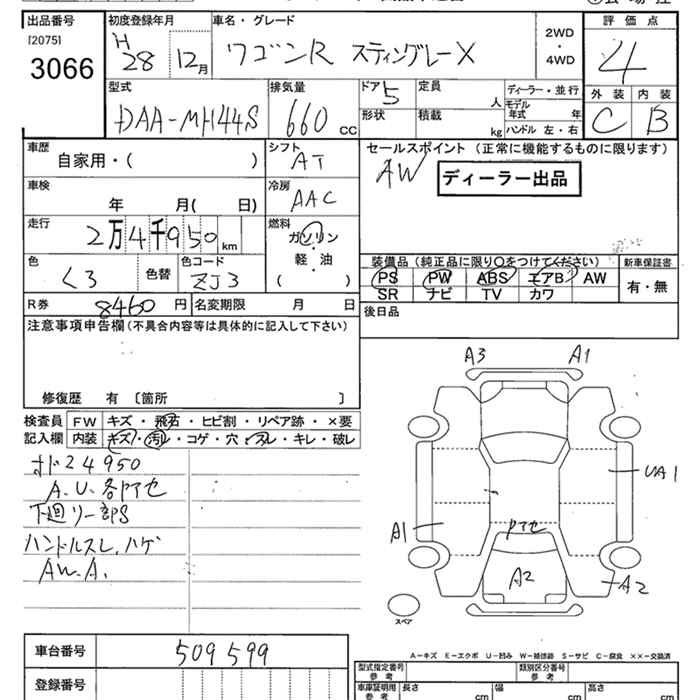 出品番号
[2075]
3066
初度登録年月
H 28 12月
車名・グレード
ワゴンR スティングレーX
2WD
・
4WD
評価点
4
外装 内装
C B
型式
DAA-MH44S
排気量
660 CC
ドア 5
形状
定員 人
積載 kg
ディーラー・並行
モデル年式 年
ハンドル 左・右
車歴
自家用・( )
シフト
AT
車検
年 月( 日)
冷房
AAC
走行
2万4千950km
燃料
ガソリン
・
軽・油
( )
色
くろ
色替
色コード
ZJ3
R券 8460 円
名変期限 月 日
セールスポイント (正常に機能するものに限ります)
AW
ディーラー出品
装備品 (純正品に限り○をつけてください)
PS PW ABS エアB AW
SR ナビ TV カワ
新車保証書
有・無
後日品
注意事項申告欄 (不具合内容等は具体的に記入して下さい)
修復歴 有 〔箇所 〕
検査員記入欄
FW キズ・飛石・ヒビ割・リペア跡・×要
内装 キズ・汚レ・コゲ・穴・スレ・キレ・破レ
オド24950
A.U.各アセ
下廻リ一部S
ハンドルスレ、ハゲ
AW.A.
A3 A1
UA1
A1
アセ
A2
A2
スペア
A－キズ E－エクボ U－凹み W－補修跡 S－サビ C－腐食 ××－交換済
車台番号 509599
登録番号
型式指定番号
参考
類別区分番号
参考
車庫証明用
参考
長さ cm
幅 cm
高さ cm